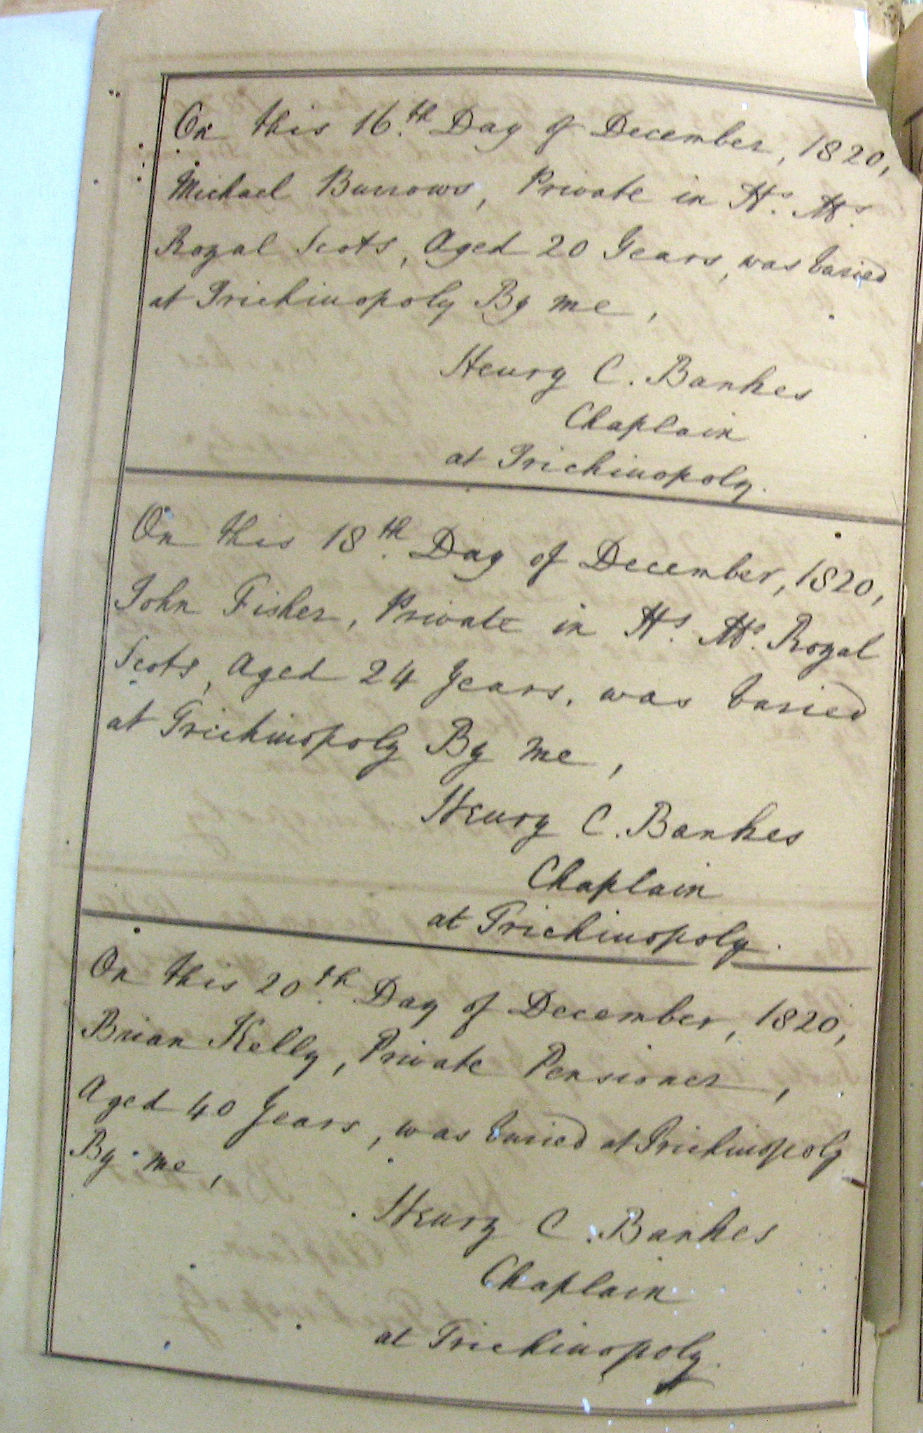 On this 16th Day of December, 1820,
Michael Burrows, Private in Hs. Ms.
Royal Scots, Aged 20 Years, was buried
at Trichinopoly By me,
Henry C. Bankes
Chaplain
at Trichinopoly.
On this 18th Day of December, 1820,
John Fisher, Private in Hs. Ms. Royal
Scots, Aged 24 Years, was buried
at Trichinopoly By me,
Henry C. Bankes
Chaplain
at Trichinopoly.
On this 20th Day of December, 1820,
Brian Kelly, Private Pensioner,
Aged 40 Years, was buried at Trichinopoly
By me,
Henry C. Bankes
Chaplain
at Trichinopoly.